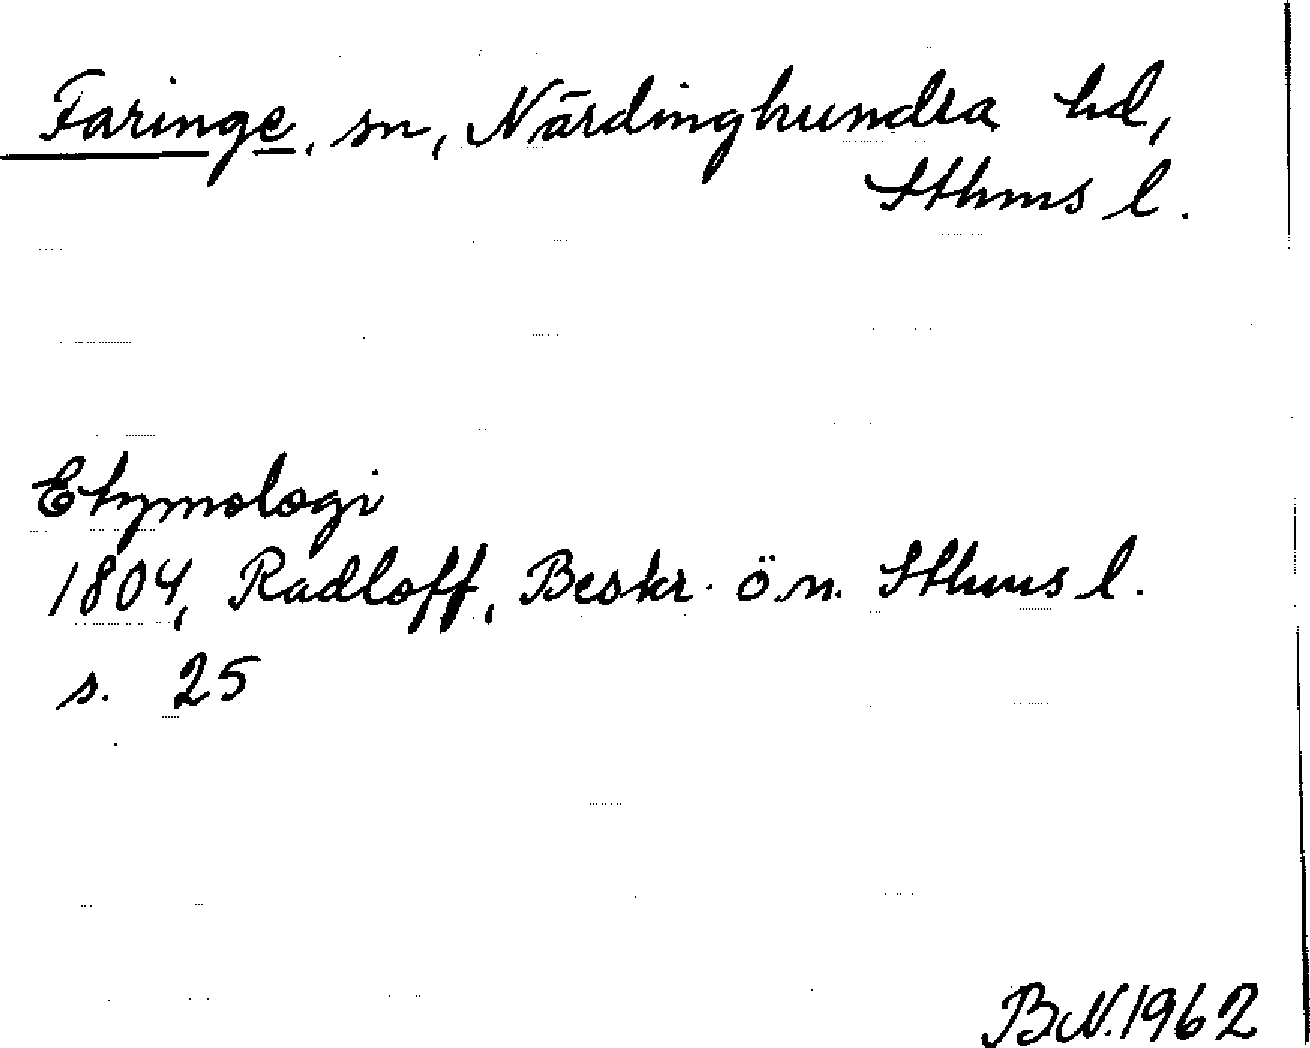 Faringe, sn, Närdinghundra hd,
Sthms l.
Etymologi
1804, Radloff, Beskr. ö. n. Sthms l.
s. 25
B.N. 1962